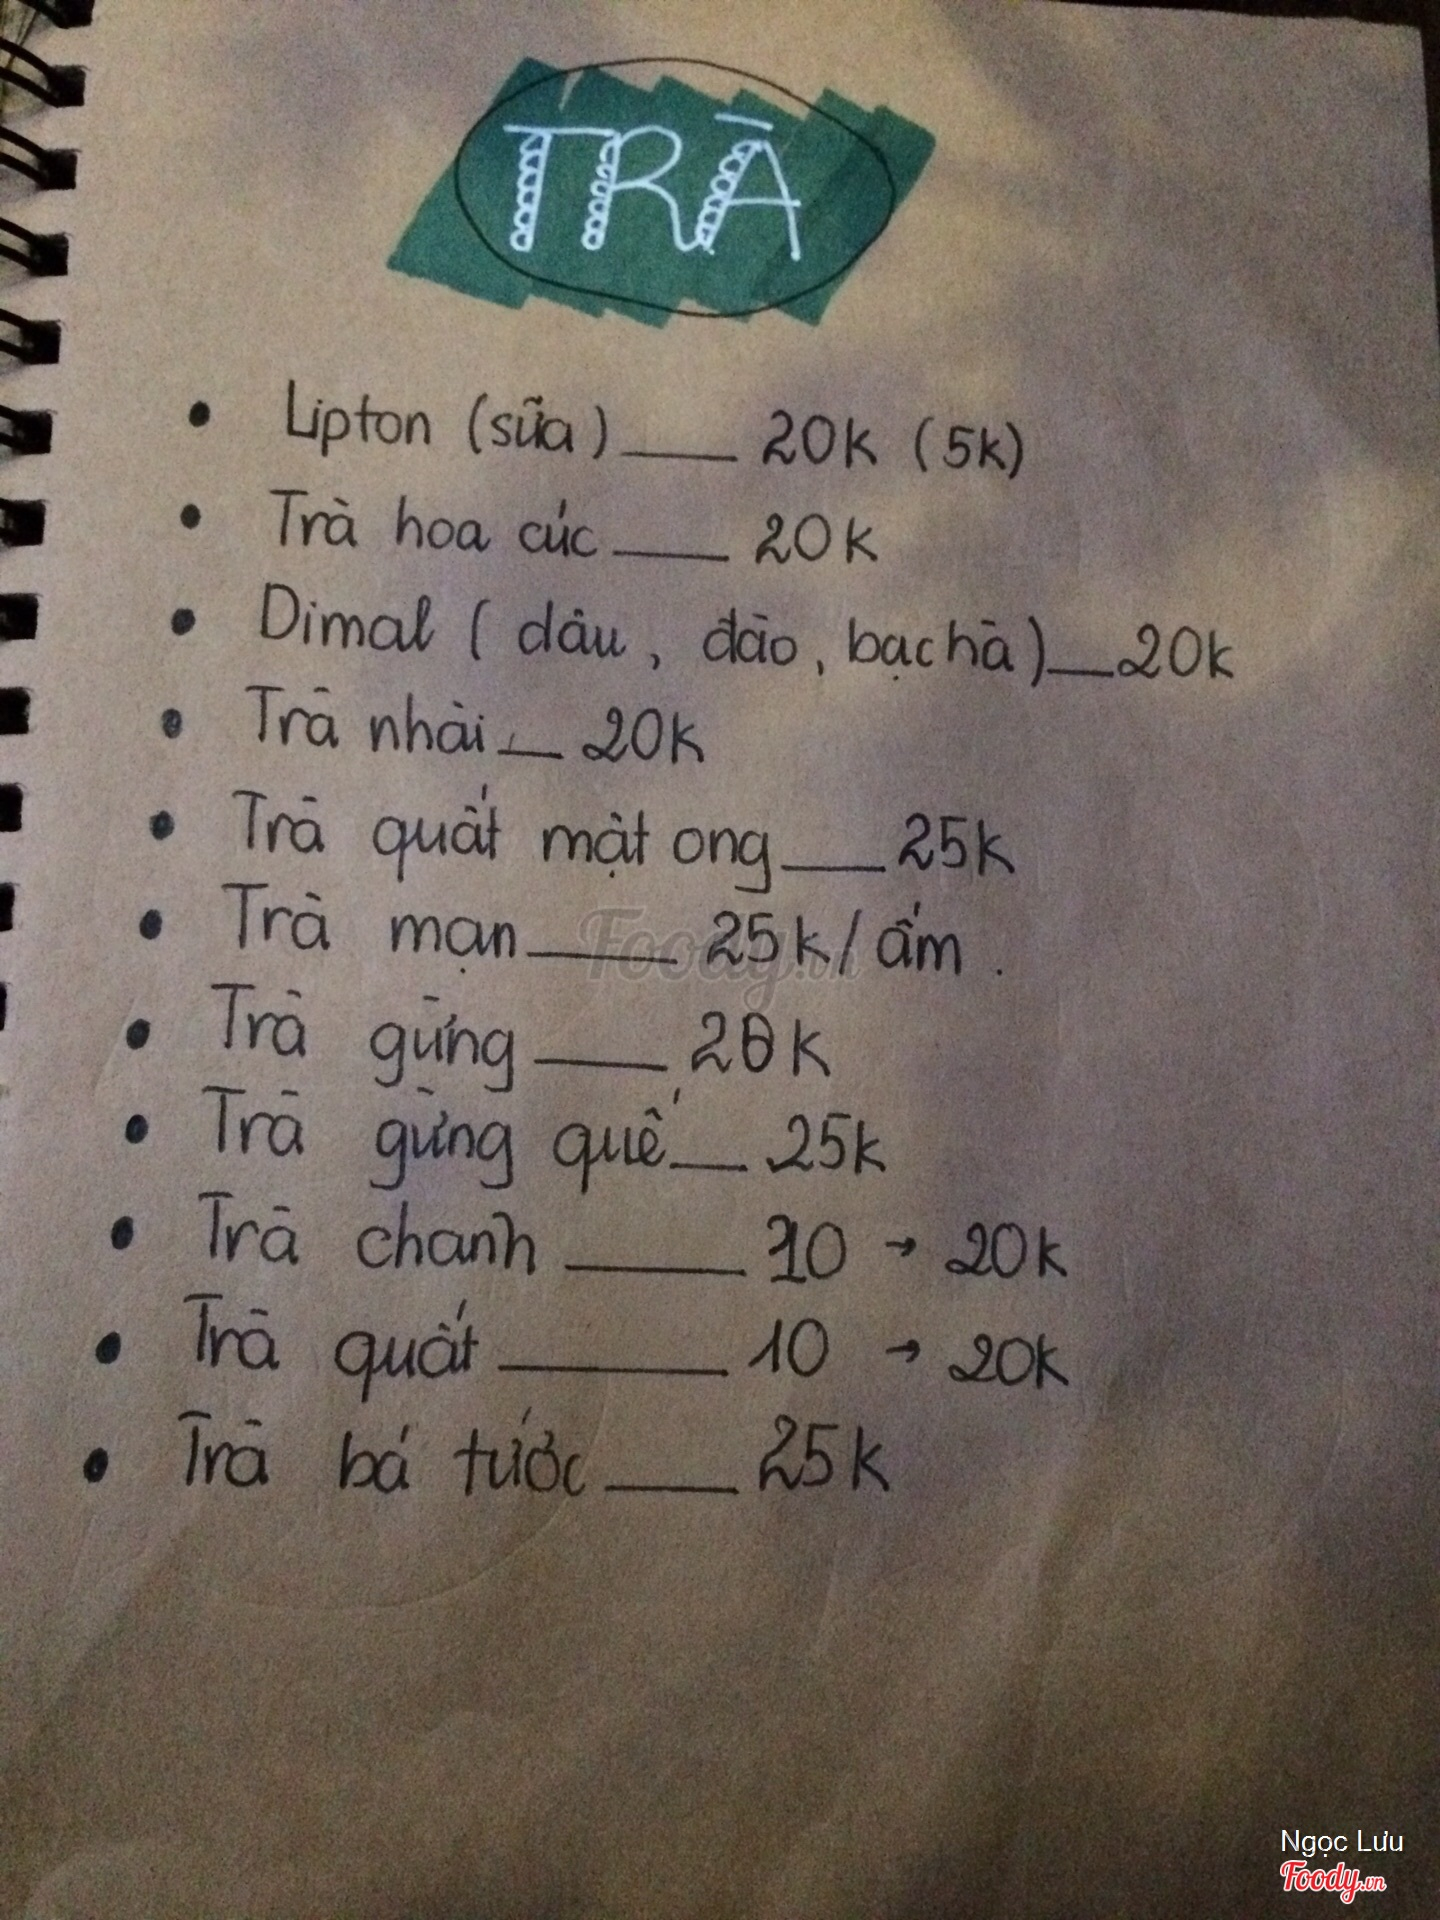 TRÀ
• Lipton (sữa) ___ 20k (5k)
• Trà hoa cúc ___ 20k
• Dimal ( dâu , đào, bạc hà) __ 20k
• Trà nhài __ 20k
• Trà quất mật ong ___ 25k
• Trà mạn ____ 25k / ấm .
• Trà gừng ___ 20k
• Trà gừng quế __ 25k
• Trà chanh ____ 10 → 20k
• Trà quất _____ 10 → 20k
• Trà bá tước ___ 25k
Foody.vn
Ngọc Lưu
Foody.vn